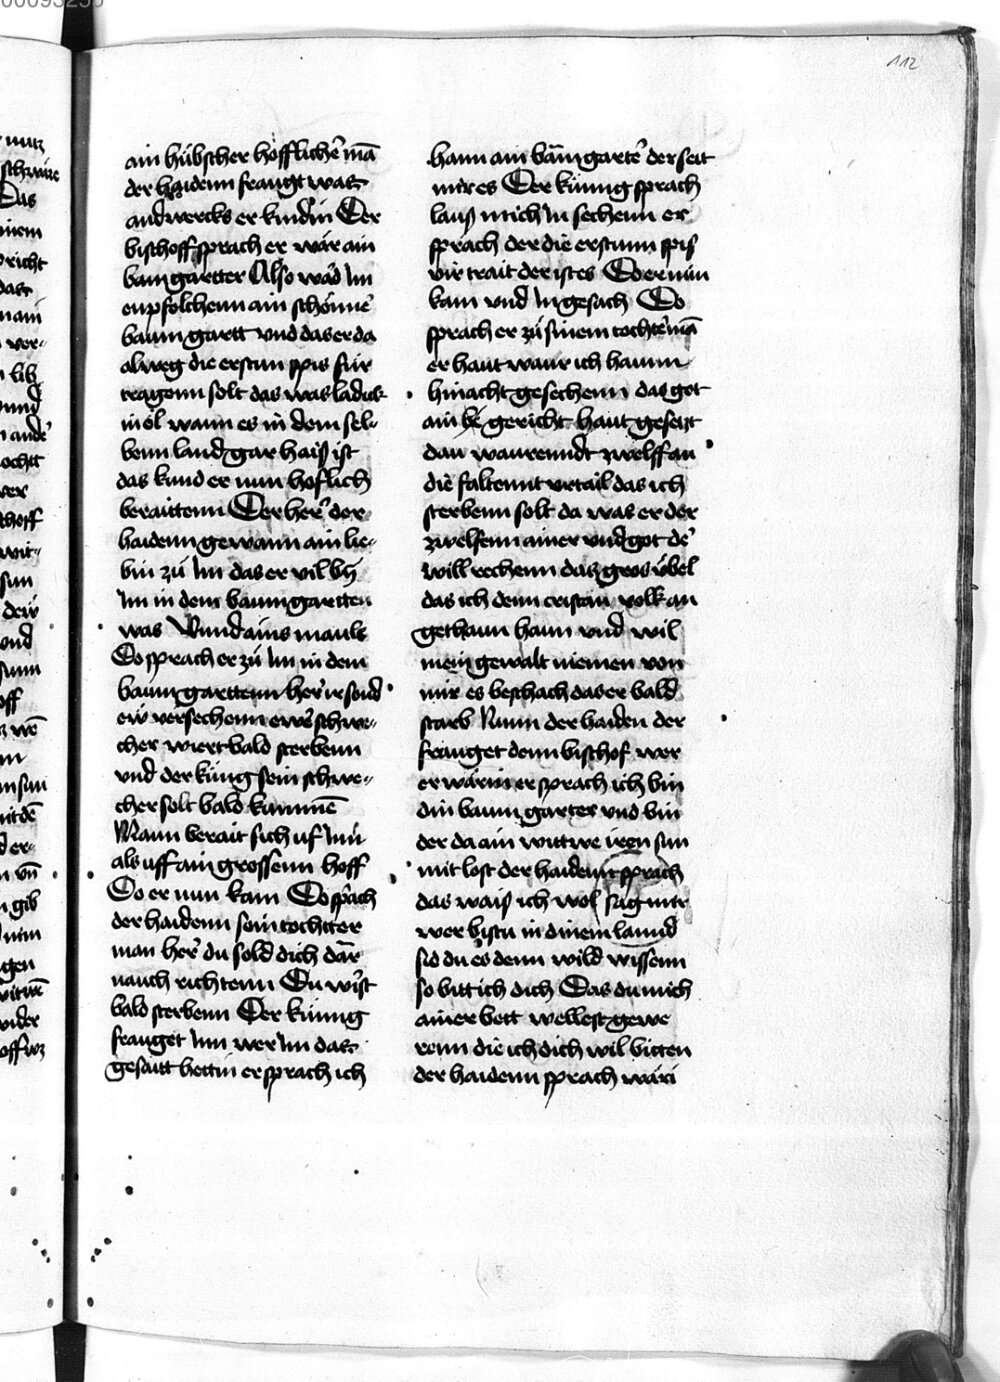 112
ain hübscher hofflicher mā
der haidenn fraugt was
andwercks er kundin Der
bischoff sprach er wär ain
bamgartter Also ward Im
enpfolchenn ain schönne
baumgartt vnd das er da
alweg die erstun spis für
tragenn solt das was laduk
in öl wann es in dem sel-
benn land gar haiß ist
das kund er nun hoflich
beraittenn Der her der
haidenn gewann ain lie-
bin zü Im das er vil by
Im in dem baumgartten
was Vnd ains mauls
Do sprach er zü Im in dem
baumgarttenn her ir sond
ew versechenn ewer schwe-
cher wiert bald sterbenn
vnd der küng sein schwe-
cher solt bald kummē
Mann berait sich uf Im
als uff ain grossenn hoff
Do er nun kam Do sprach
der haidenn sein tochtter
man her du sold dich dar
nauch richtenn Du wirst
bald sterbenn Der künng
frauget Im wer Im das
gesait hettin er sprach ich
hann ain bāmgarte der seit
mir es Der künng sprach
lauß mich In sechenn er
sprach der die erstunn spis
vir trait der ist es Do er nun
kam vnd In gesach Do
sprach er zü sinem tochter mā
er haut waur ich hann
hinacht gesechenn das got
ain gericht haut gesetzt
dan waurenndt zwelff an
die faltennt vrtail das ich
sterbenn solt da was er der
zwelfenn ainer vnd got der
will rechenn das gros übel
das ich denn cristan volk an
gethann hann vnd wil
mein gewalt niemen von
mir es beschach das er bald
starb Nunn der haiden der
frauget denn bischof wer
er wärin er sprach ich bin
din baumgarter vnd bin
der da ain wittwe iren sun
mit lost der haidenn sprach
das waiß ich wol sag mir
wer bistu in dinem lannd
sid du es denn wild wissenn
so bitt ich dich Das du mich
ainer bett wellest gewe
renn die ich dich wil bitten
der haidenn sprach wäri